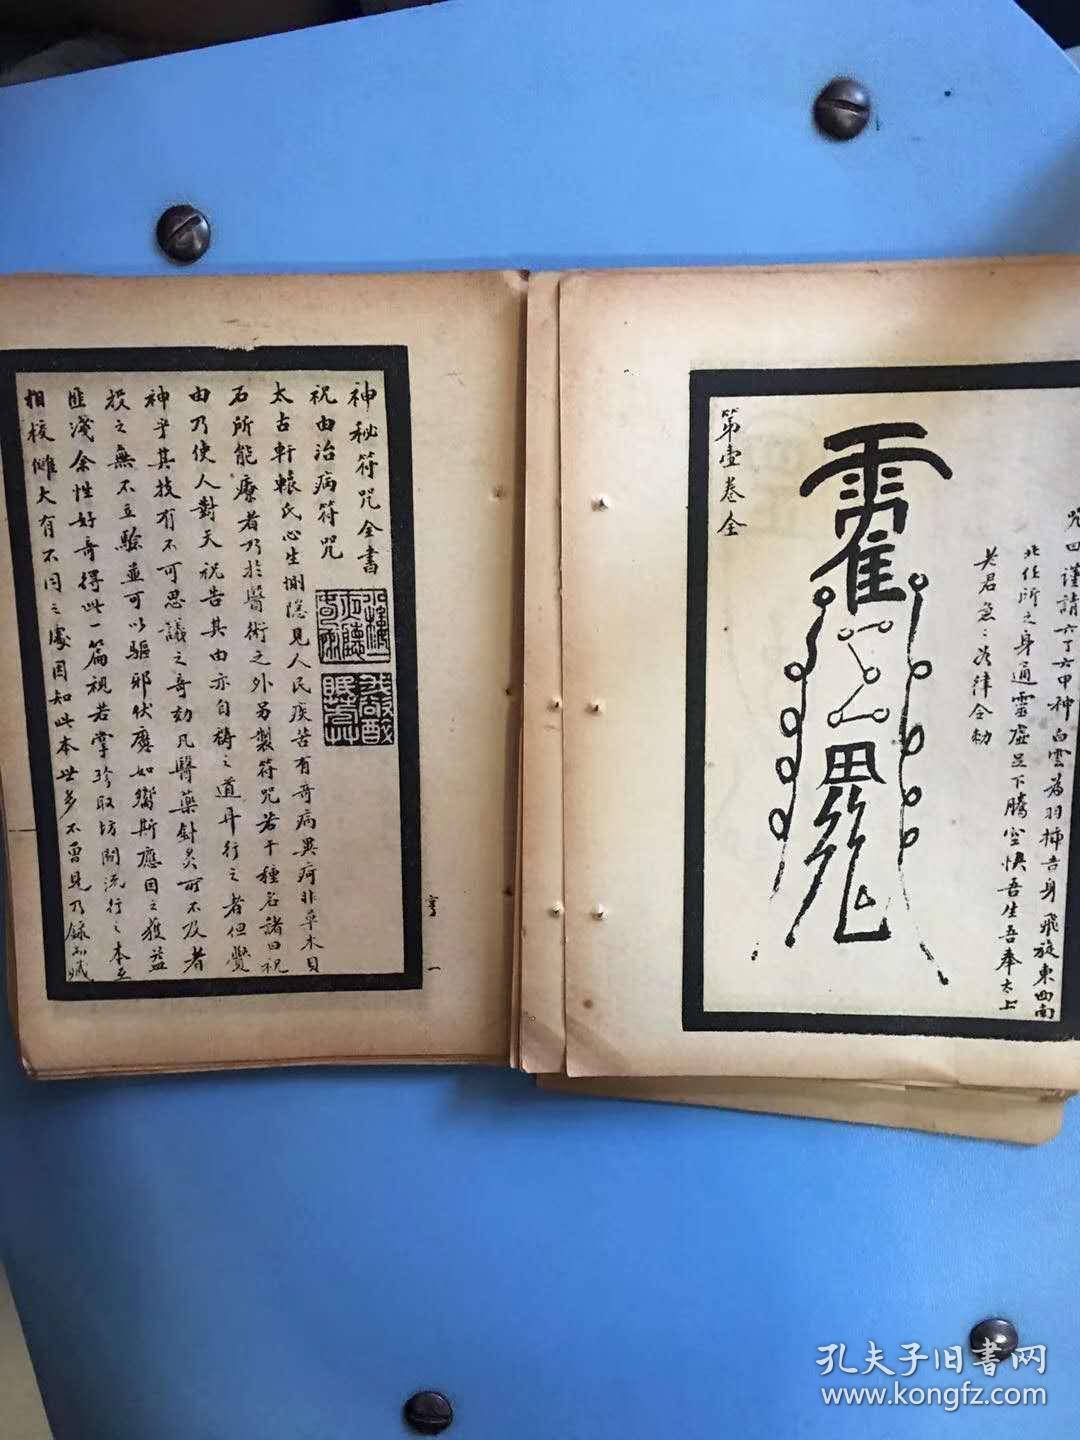 咒曰謹請六丁六甲神白雲為羽揷吾身飛旋東西南
北任所之身通靈虛足下騰空快吾生吾奉太上
老君急〻
律令勅
第壹卷全
神秘符咒全書
祝由治病符咒
太古軒轅氏心生惻隱見人民疾苦有奇病異疴非草木貝
石所能療者乃於醫術之外另製符咒若干種名諸曰祝
由乃使人對天祝告其由亦自禱之道
行之者但覺
神乎其技有不可思議之奇効凡醫藥針灸所不及者
投之無不立驗並可以驅邪伏魔如響斯應因之獲益
匪淺余性好奇得此一篇視若掌珍取坊間流行之本互
相校讎大有不同之處因知此本世多不曾見乃錄而
一
孔夫子旧書网
www.kongfz.com